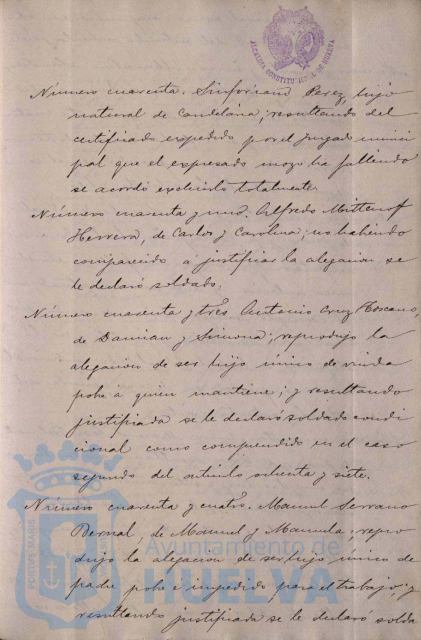 ALCALDIA CONSTITUCIONAL DE HUELVA
Número cuarenta. Sinforiano Perez, hijo
natural de Candelaria; resultando del
certificado expedido por el Juzgado munici
pal que el expresado mozo ha fallecido
se acordó excluirlo totalmente.
Número cuarenta y uno. Alfredo Mittenhof
Herrera, de Carlos y Carolina; no habiendo
comparecido a justificar la alegacion se
le declaró soldado.
Número cuarenta y tres. Antonio Cruz Toscano,
de Damian y Simona; reprodujo la
alegacion de ser hijo único de viuda
pobre á quien mantiene; y resultando
justificada se le declaró soldado condi
cional como comprendido en el caso
segundo del artículo ochenta y siete.
Número cuarenta y cuatro. Manuel Serrano
Bernal, de Manuel y Manuela; repro
dujo la alegacion de ser hijo único de
padre pobre é impedido para el trabajo; y
resultando justificada se le declaró solda
PORTUS MARIS
Ayuntamiento de
HUELVA